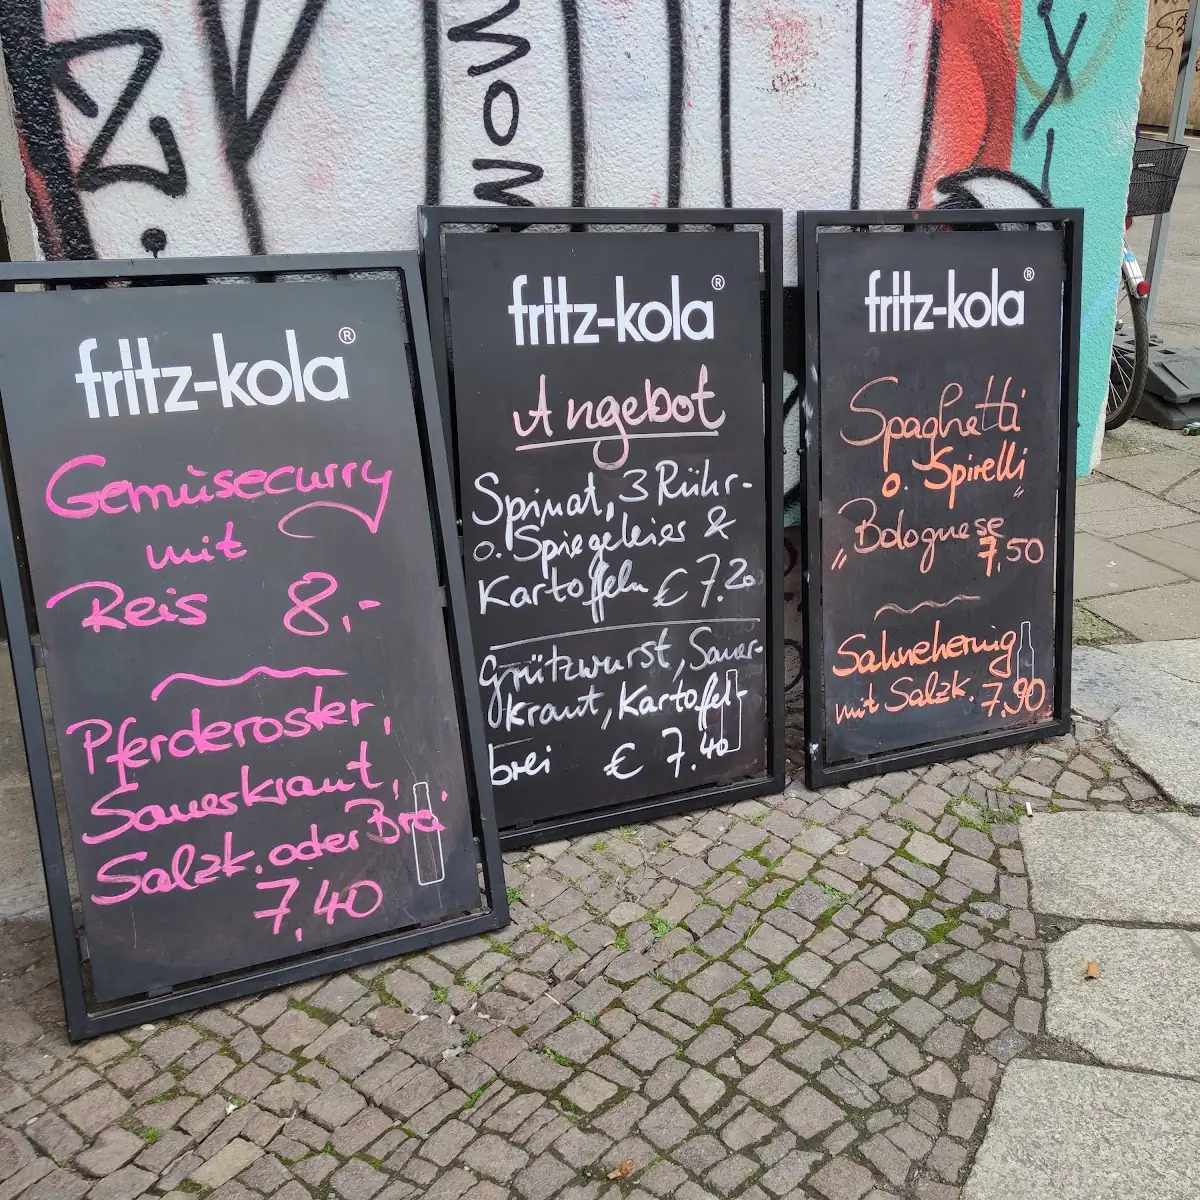 fritz-kola®
Gemüsecurry
mit
Reis 8,-
Pferderoster,
Sauerkraut,
Salzk. oder Brei.
7,40
fritz-kola®
Angebot
Spinat, 3 Rühr-
o. Spiegeleier &
Kartoffeln € 7.20
Grützwurst, Sauer-
kraut, Kartoffel-
brei € 7.40
fritz-kola®
Spaghetti
o. Spirelli
„Bolognese“
7,50
Sahnehering
mit Salzk. 7,90